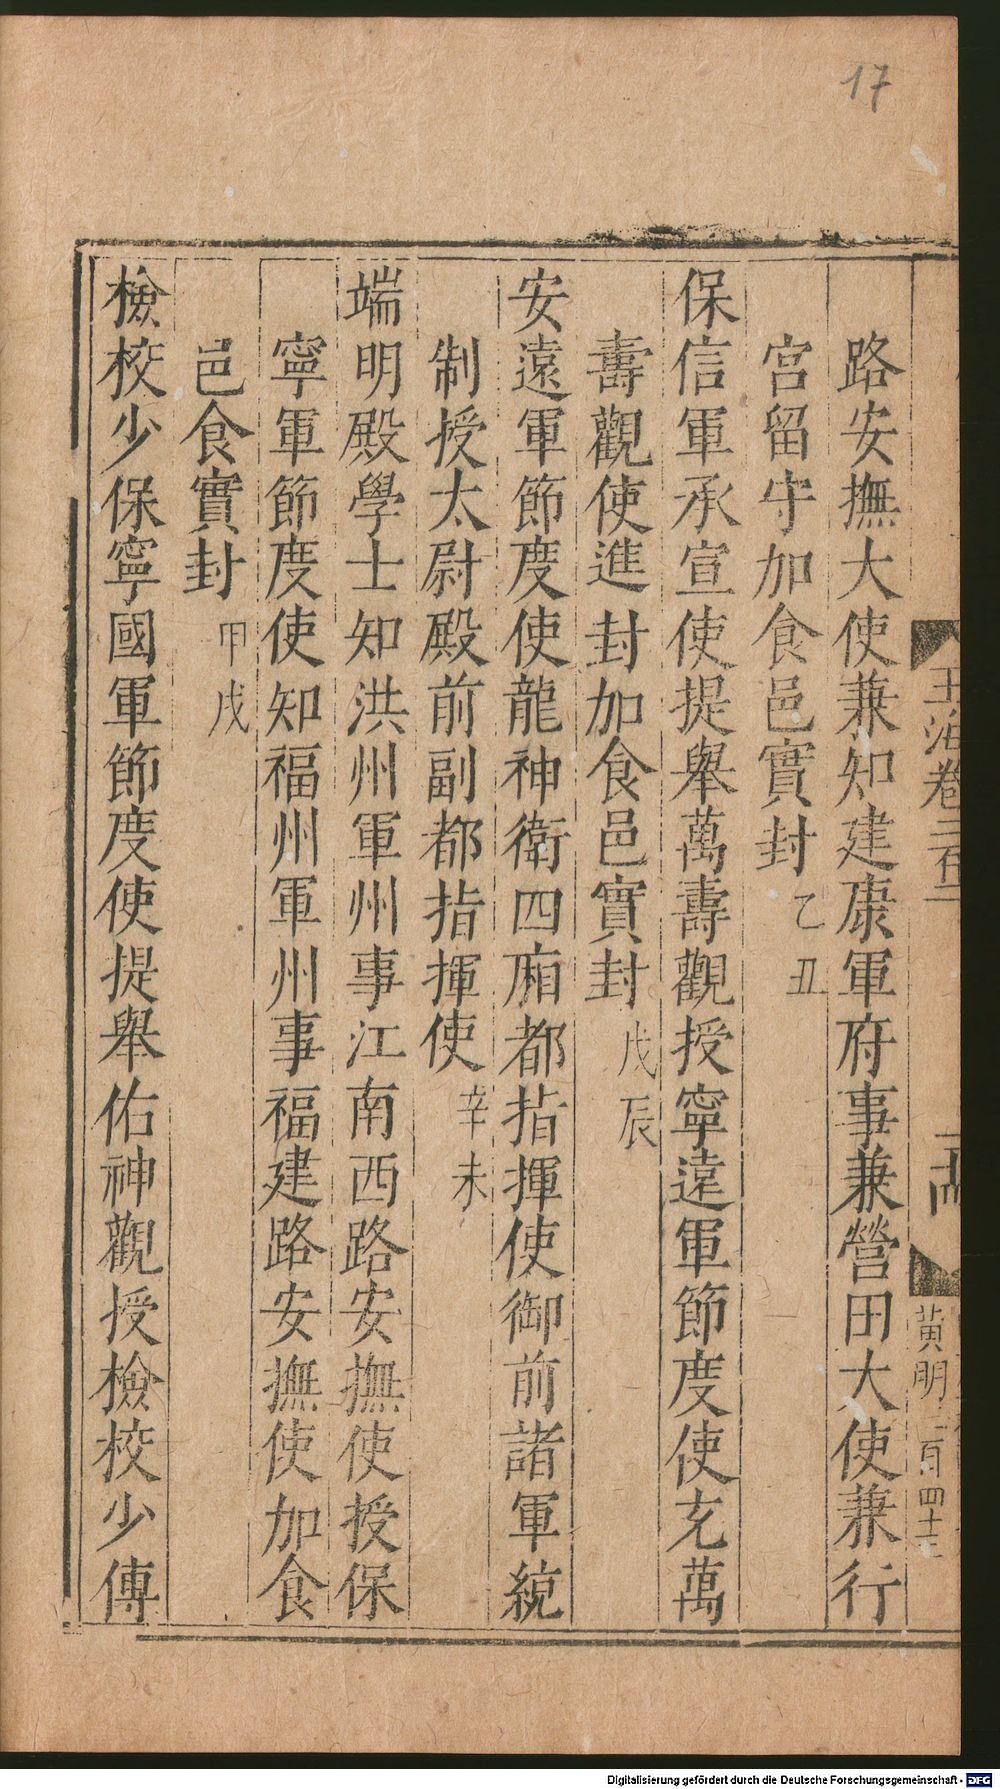 17
玉海卷二百二
黃明 百四十
路安撫大使兼知建康軍府事兼營田大使兼行
宮留守加食邑實封乙丑
保信軍承宣使提舉萬壽觀授寧遠軍節度使充萬
壽觀使進封加食邑實封戊辰
安遠軍節度使龍神衛四廂都指揮使御前諸軍統
制授太尉殿前副都指揮使辛未
端明殿學士知洪州軍州事江南西路安撫使授保
寧軍節度使知福州軍州事福建路安撫使加食
邑食實封甲戌
檢校少保寧國軍節度使提舉佑神觀授檢校少傅
Digitalisierung gefördert durch die Deutsche Forschungsgemeinschaft - DFG